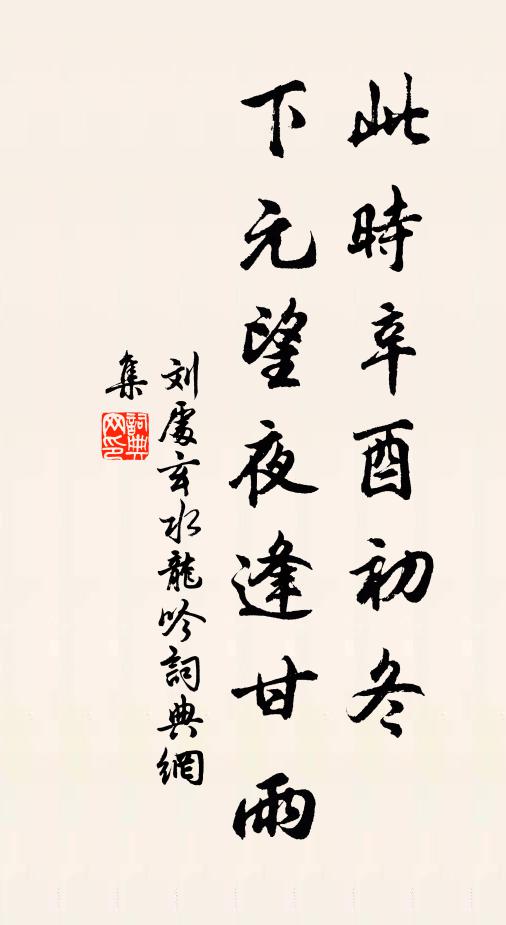 此時辛酉初冬
下元望夜逢甘雨
刘處玄水龍吟詞典網
集
詞典
网印